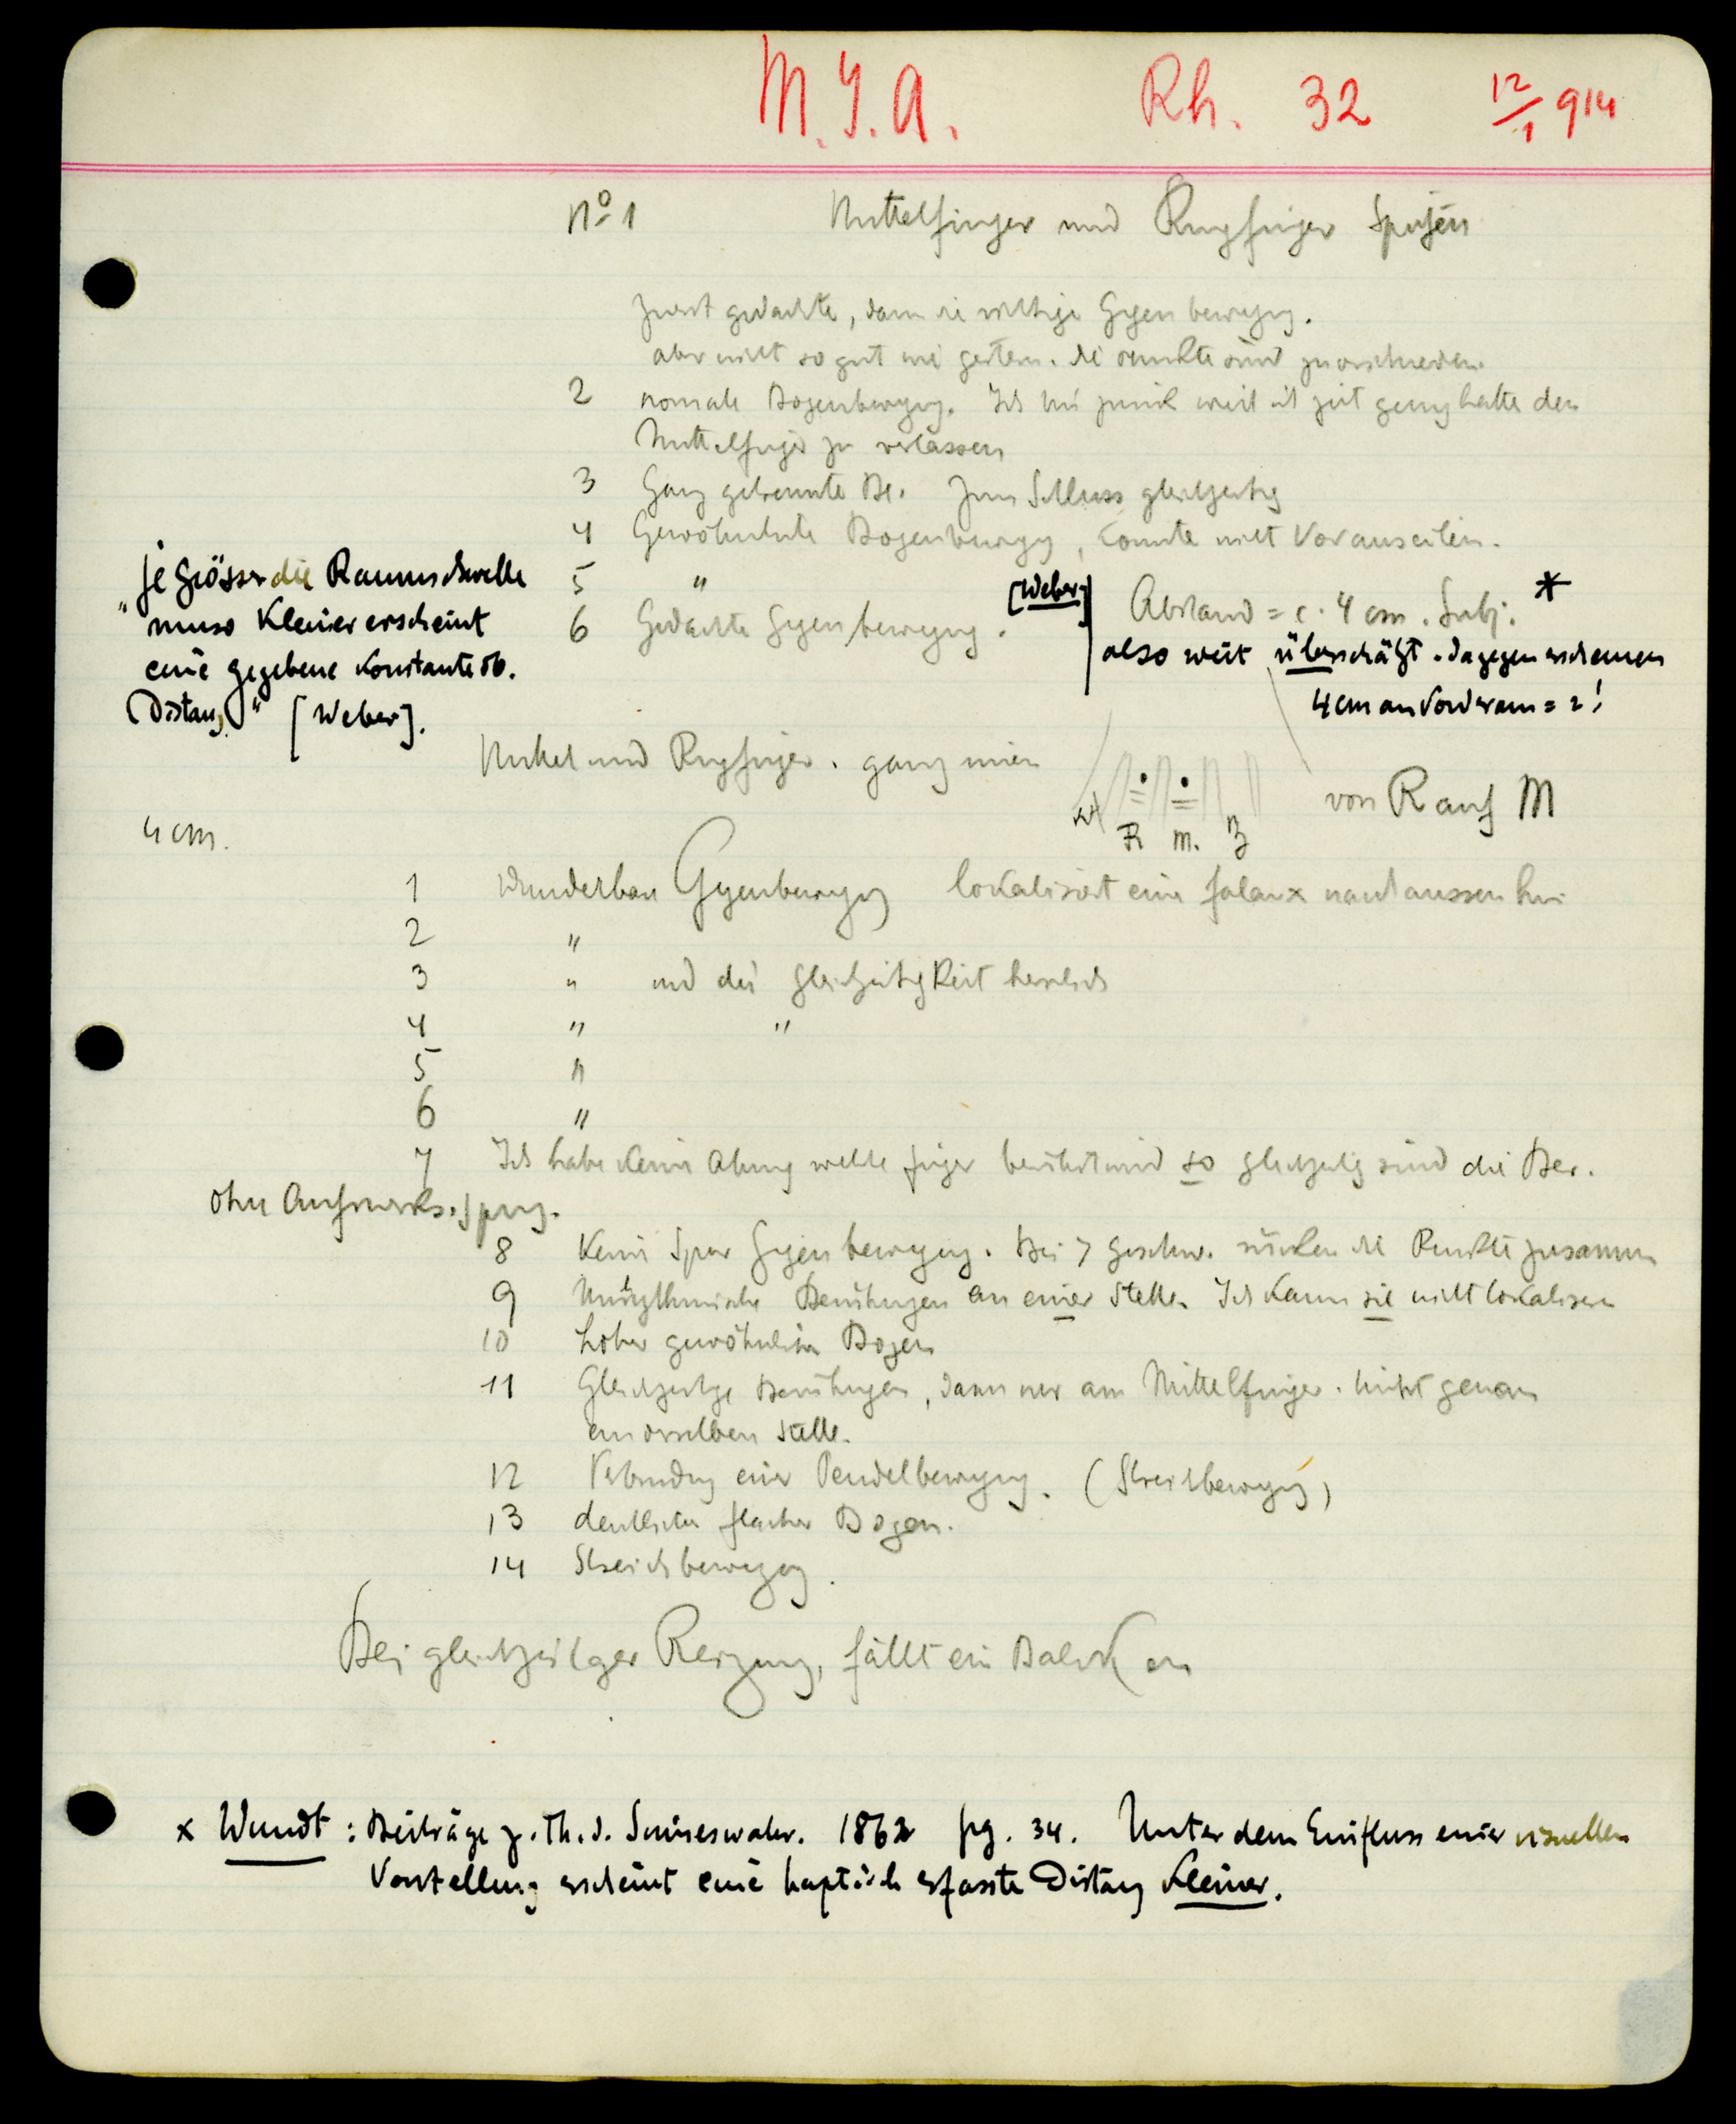 M.Y.A. Rh. 32 12/1 914
No 1 Mittelfinger und Ringfinger Spitzen
Zuerst gedachte, dann die richtige Gegenbewegung.
aber nicht so gut wie gestern. die Punkte sind zu verschieden.
2 normale Bogenbewegung. Ich bin zurück weil ich zeit genug hatte den
Mittelfinger zu verlassen
3 Ganz getrennte Be. Zum Schluss gleichzeitig
4 Gewöhnlichste Bogenbewegung, konnte nicht Vorauseilen.
5 "
6 Gedachte Gegenbewegung.
je grösser die Raumschwelle
"umso Kleiner erscheint
eine gegebene Konstante Ob.
Distanz" [Weber].
[Weber]
Abstand = c. 4 cm. Subj. *
also weit überschätzt. dagegen erscheinen
4 cm am Vorderarm = 2!
Mittel und Ringfinger. ganz innen
R M. Z
von R auf M
4 cm.
1 Wunderbare Gegenbewegung lokalisiert eine falanx nach aussen hin
2 "
3 " und die Gleichzeitigkeit herrlich
4 " "
5 "
6 "
7 Ich habe keine Ahnung welche finger berührt wird so gleichzeitig sind die Ber.
ohne Aufmerks.
8 Keine Spur Gegenbewegung. Bei > geschw. rücken die Punkte zusammen
9 Unrythmische Berührungen an einer Stelle. Ich kann sie nicht lokalisieren
10 hoher gewöhnlicher Bogen
11 Gleichzeitige Berührungen, dann nur am Mittelfinger. Nicht genau
an derselben Stelle.
12 Verbindung einer Pendelbewegung. (Streichbewegung)
13 deutlicher flacher Bogen.
14 Streichbewegung.
Bei gleichzeitger Reizung, fällt ein Balck an
x Wundt: Beiträge z. Th. d. Sinneswahr. 1862 pg. 34. Unter dem Einfluss einer visuellen
Vorstellung erscheint eine haptisch erfasste Distanz Kleiner.